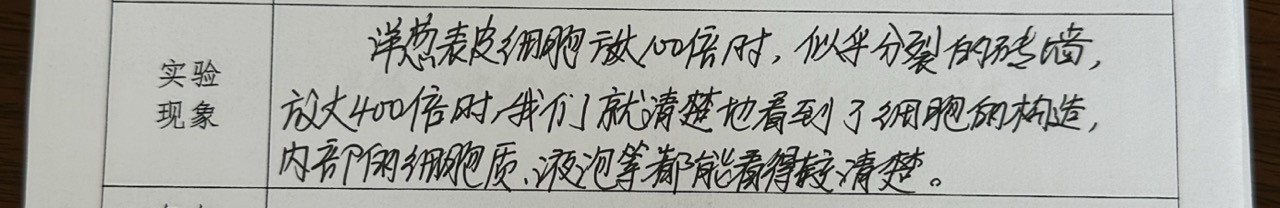 实验
现象
洋葱表皮细胞放大100倍时，似乎分裂的砖墙，
放大400倍时，我们就清楚地看到了细胞的构造，
内部的细胞质、液泡等都能看得较清楚。